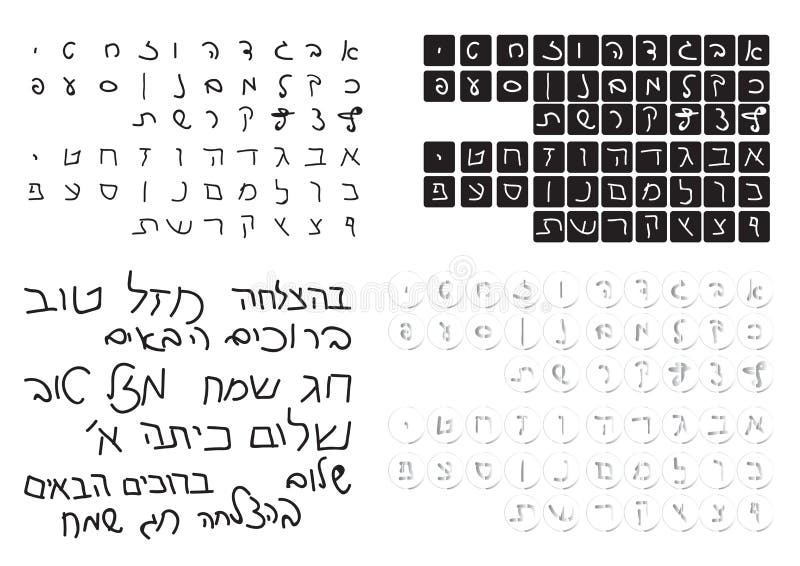 א ב ג ד ה ו ז ח ט י
כ ך ל מ ם נ ן ס ע פ
ף צ ץ ק ר ש ת
א ב ג ד ה ו ז ח ט י
כ ך ל מ ם נ ן ס ע פ
ף צ ץ ק ר ש ת
א ב ג ד ה ו ז ח ט י
כ ך ל מ ם נ ן ס ע פ
ף צ ץ ק ר ש ת
א ב ג ד ה ו ז ח ט י
כ ך ל מ ם נ ן ס ע פ
ף צ ץ ק ר ש ת
בהצלחה מזל טוב
ברוכים הבאים
חג שמח מזל טוב
שלום כיתה א'
שלום ברוכים הבאים
בהצלחה חג שמח
א ב ג ד ה ו ז ח ט י
כ ך ל מ ם נ ן ס ע פ
ף צ ץ ק ר ש ת
א ב ג ד ה ו ז ח ט י
כ ך ל מ ם נ ן ס ע פ
ף צ ץ ק ר ש ת